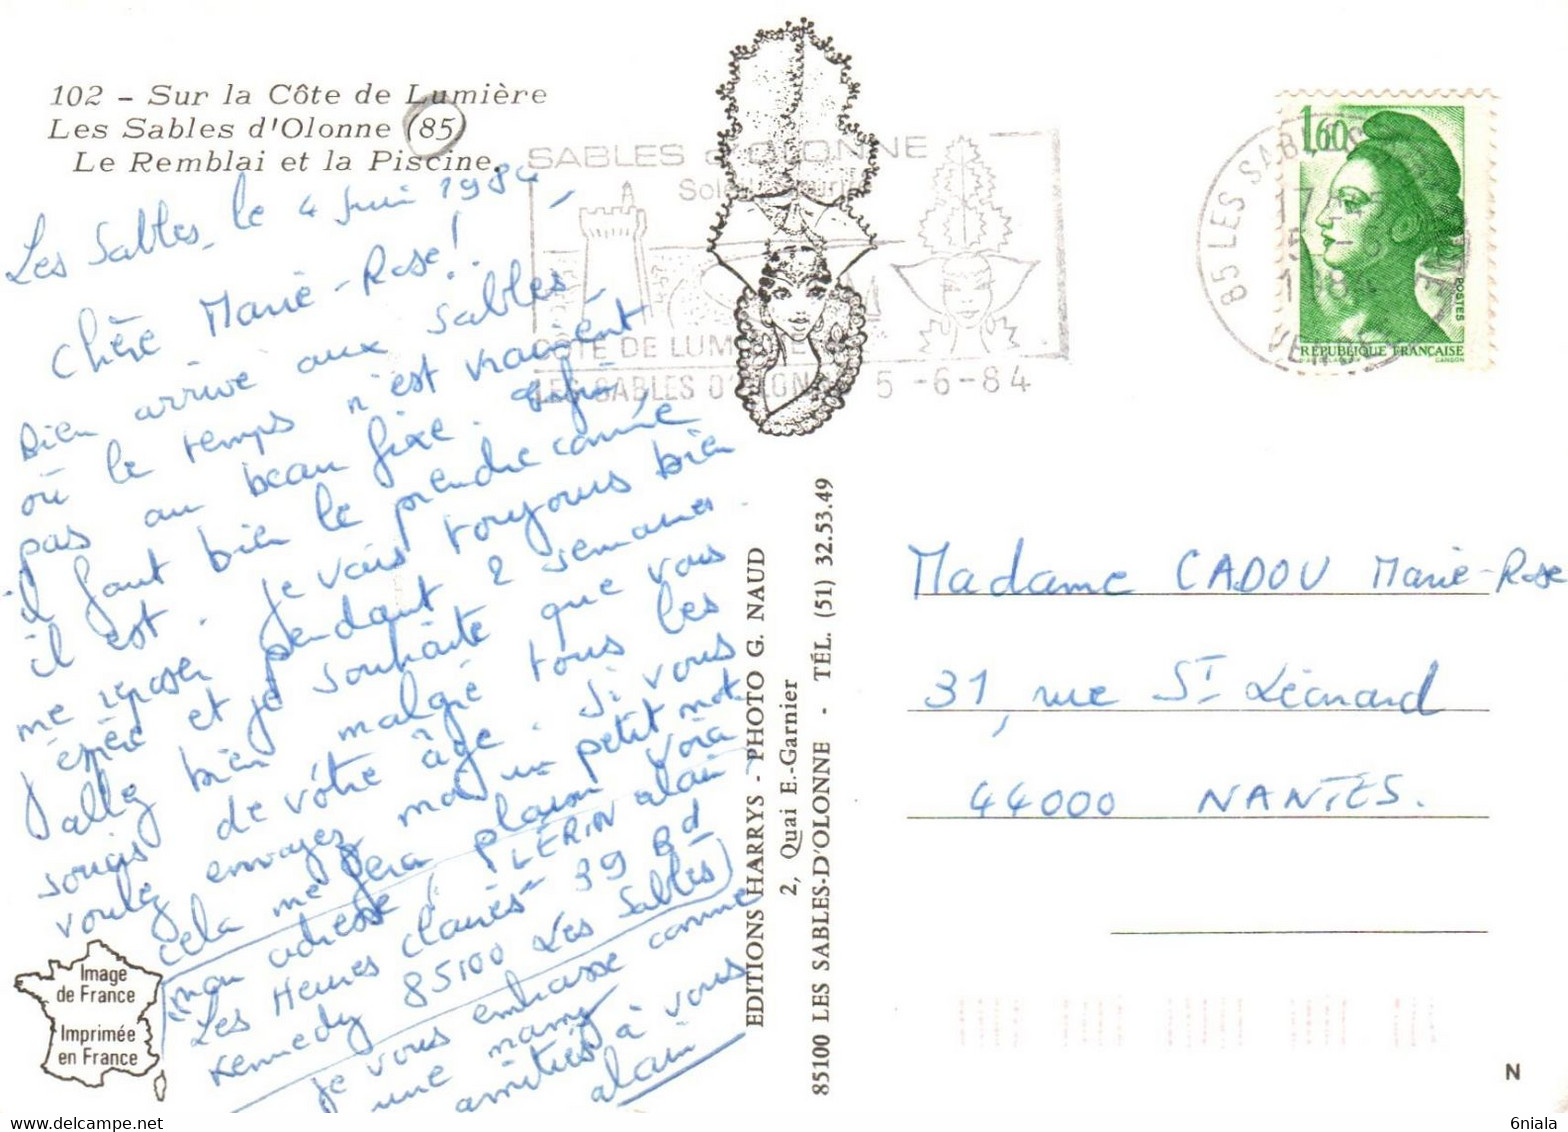 102 - Sur la Côte de Lumière
Les Sables d'Olonne (85)
Le Remblai et la Piscine.
Les Sables, le 4 Juin 1984,
Chère Marie-Rose!
Bien arrivé aux Sables
où le temps n'est vraiment
pas au beau fixe. enfin,
il faut bien le prendre comme
il est. Je vais toujours bien
me reposer pendant 2 semaines.
J'espère et je souhaite que vous
allez bien malgré tous les
soucis de vôtre âge. Si vous
voulez envoyez moi un petit mot
cela me fera plaisir voià
mon adresse: PLÉRIN alain
Les Heures Claires" 39 Bd
Kennedy 85100 Les Sables)
je vous embrasse comme
une mamy
amitiés à vous
alain
SABLES D'OLONNE
CÔTE DE LUMIERE
LES SABLES D'OLONNE 5-6-84
EDITIONS HARRYS - PHOTO G. NAUD
2, Quai E.-Garnier
85100 LES SABLES-D'OLONNE - TÉL. (51) 32.53.49
1,60
POSTES
REPUBLIQUE FRANÇAISE
85 LES SABLES
Madame CADOU Marie-Rose
31, rue St Léonard
44000 NANTES.
Image
de France
Imprimée
en France
N
6niala